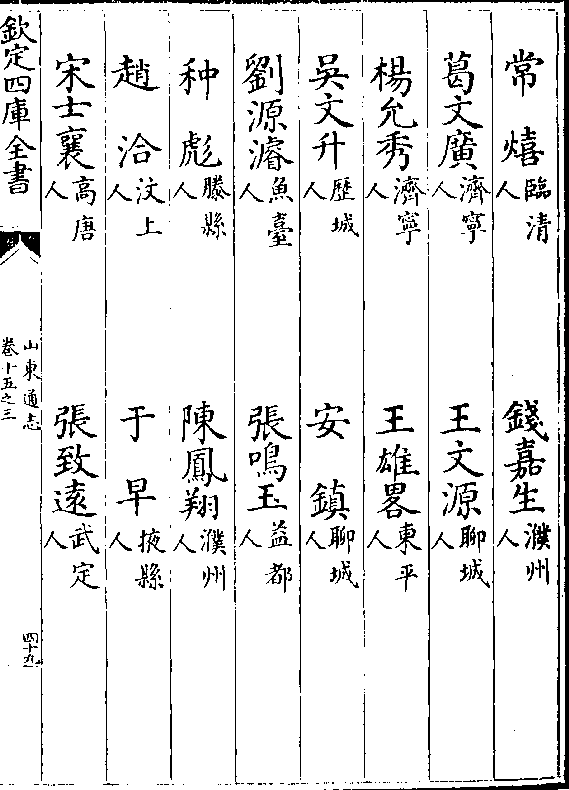 常熺臨清人　錢嘉生濮州人
葛文廣濟寧人　王文源聊城人
楊允秀濟寧人　王雄畧東平人
吳文升歷城人　安鎮聊城人
劉源濬魚臺人　張鳴玉益都人
种彪滕縣人　陳鳳翔濮州人
趙洽汶上人　于早掖縣人
宋士襄高唐人　張致遠武定人
欽定四庫全書
山東通志
卷十五之三
四十九